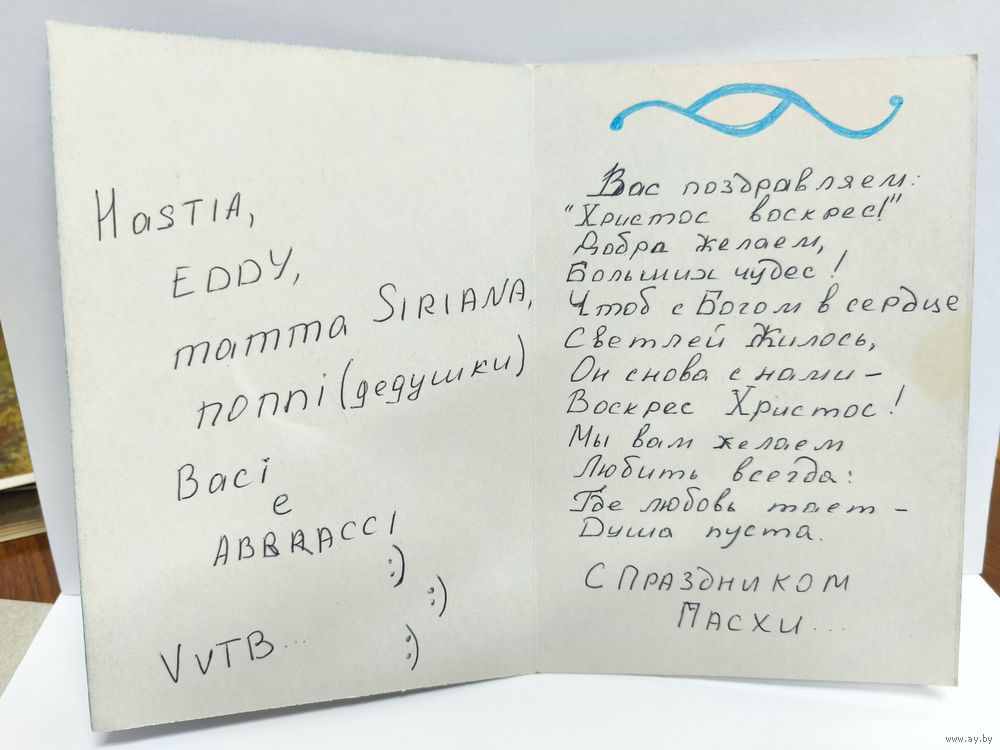 HaSTIA,
EDDY,
mamma SIRIANA,
nonni (дедушки)
Baci
e
ABBRACCI
:)
:)
VVTB...
:)
Вас поздравляем:
"Христос воскрес!"
Добра желаем,
Больших чудес!
Чтоб с Богом в сердце
Светлей жилось,
Он снова с нами –
Воскрес Христос!
Мы вам желаем
Любить всегда:
Где любовь тает –
Душа пуста.
С ПРАЗДНИКОМ
ПАСХИ...
www.ay.by